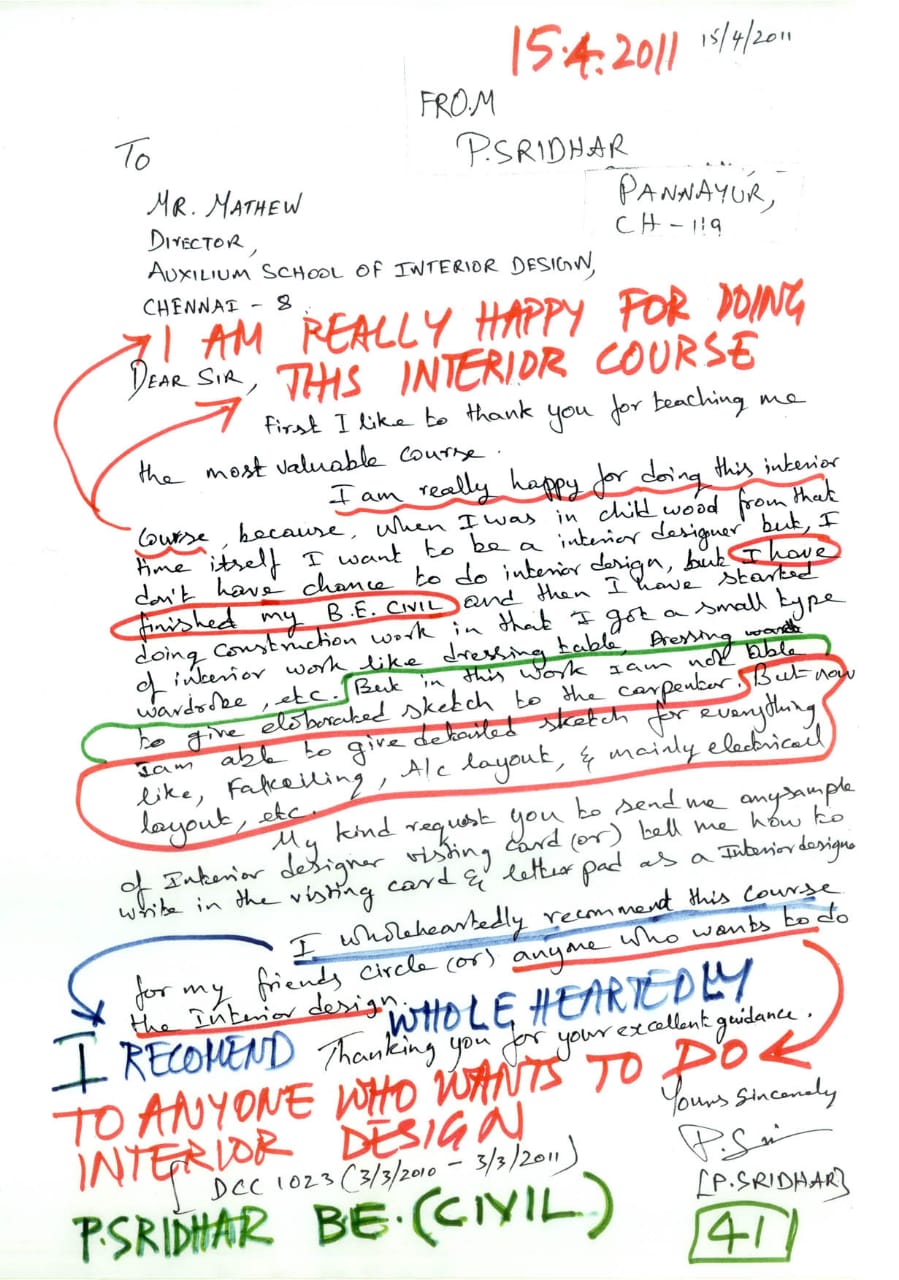 15.4.2011 15/4/2011
FROM
P.SRIDHAR
PANNAYUR,
CH - 119
To
MR. MATHEW
DIRECTOR,
AUXILIUM SCHOOL OF INTERIOR DESIGN,
CHENNAI - 8.
I AM REALLY HAPPY FOR DOING
THIS INTERIOR COURSE
DEAR SIR,
First I like to thank you for teaching me
the most valuable course.
I am really happy for doing this interior
course, because, when I was in child wood from that
time itself I want to be a interior designer but, I
don't have chance to do interior design, but I have
finished my B.E. CIVIL and then I have started
doing construction work in that I got a small type
of interior work like dressing table, Dressing
wardrobe, etc. But in this work I am not able
to give eloborated sketch to the carpenter. But now
I am able to give detailed sketch for everything
like, Falceiling, A/c layout, & mainly electrical
layout, etc.
My kind request you to send me any sample
of Interior designer visting card (or) tell me how to
write in the visting card & letter pad as a Interior designe
I wholeheartedly recomment this course
for my friends circle (or) anyone who wants to do
the Interior design.
I RECOMEND WHOLE HEARTEDLY
Thanking you for your excellent guidance.
TO ANYONE WHO WANTS TO DO
INTERIOR DESIGN
Yours Sincerely
P.Sri
[P.SRIDHAR]
[DCC 1023 (3/3/2010 - 3/3/2011)
P.SRIDHAR B.E. (CIVIL)
41